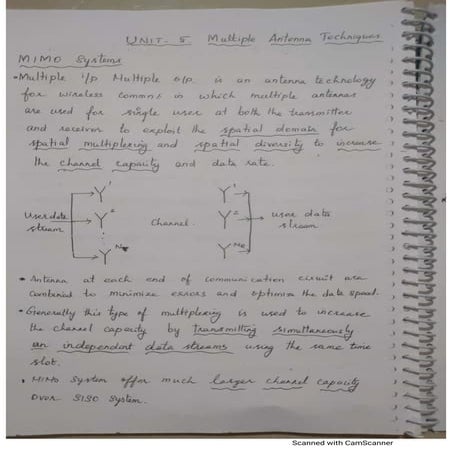 UNIT-5 Multiple Antenna Techniques
MIMO Systems
• Multiple i/p Multiple o/p is an antenna technology
for wireless commns in which multiple antennas
are used for single user at both the transmitter
and receiver to exploit the spatial domain for
spatial multiplexing and spatial diversity to increase
the channel capacity and data rate.
1 1
User data 2 Channel 2 user data
stream stream
⋮
• Antenna at each end of communication circuit are
combined to minimize errors and optimise the data speed.
• Generally this type of multiplexing is used to increase
the channel capacity by transmitting simultaneously
an independent data streams using the same time
slot.
• MIMO system offer much larger channel capacity
over SISO system.
Scanned with CamScanner